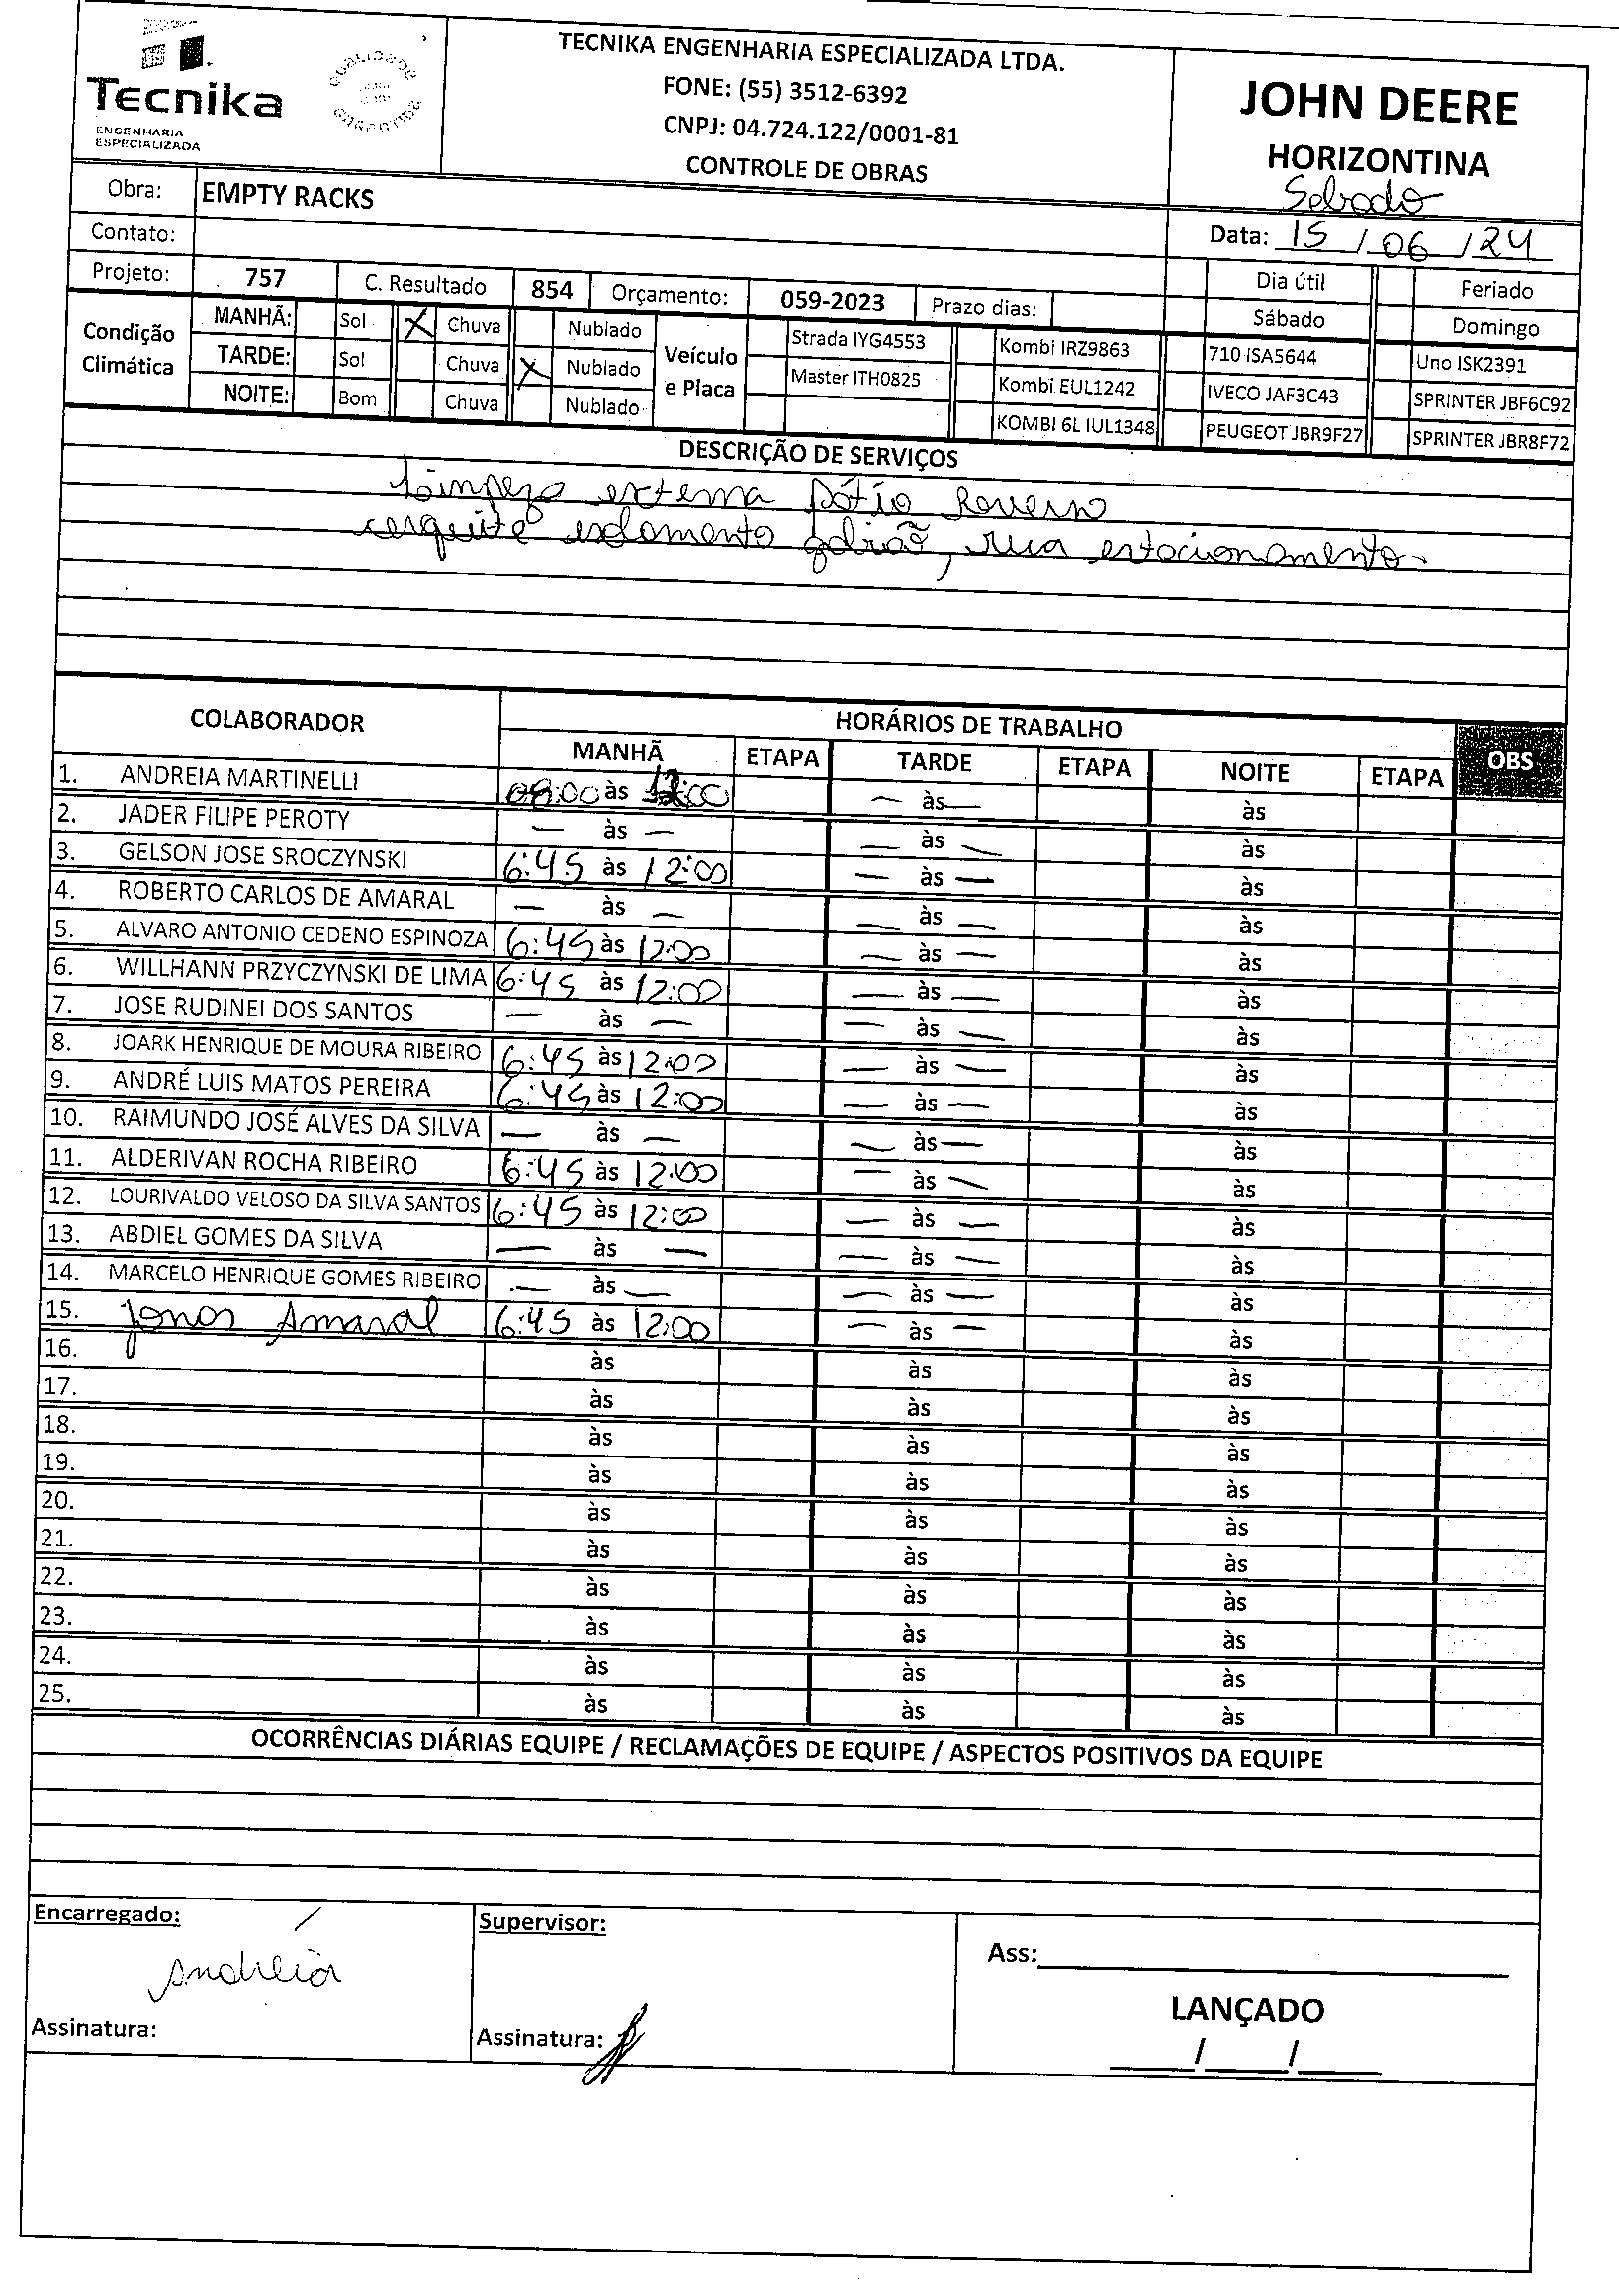 Tecnika
ENGENHARIA
ESPECIALIZADA
QUALIDADE
TECNIKA ENGENHARIA ESPECIALIZADA LTDA.
FONE: (55) 3512-6392
CNPJ: 04.724.122/0001-81
CONTROLE DE OBRAS
JOHN DEERE
HORIZONTINA
Sabado
Obra: EMPTY RACKS
Data: 15 / 06 / 24
Contato:
Projeto: 757 C. Resultado 854 Orçamento: 059-2023 Prazo dias: Dia útil Feriado
Sábado Domingo
Condição Climática
MANHÃ: Sol X Chuva Nublado
TARDE: Sol Chuva X Nublado
NOITE: Bom Chuva Nublado
Veículo e Placa
Strada IYG4553 Kombi IRZ9863 710 ISA5644 Uno ISK2391
Master ITH0825 Kombi EUL1242 IVECO JAF3C43 SPRINTER JBF6C92
KOMBI 6L IUL1348 PEUGEOT JBR9F27 SPRINTER JBR8F72
DESCRIÇÃO DE SERVIÇOS
Limpeza externa Pátio
gabião, rua estacionamento
COLABORADOR HORÁRIOS DE TRABALHO OBS
MANHÃ ETAPA TARDE ETAPA NOITE ETAPA
1. ANDREIA MARTINELLI 08:00 às 12:00 — às — às
2. JADER FILIPE PEROTY — às — — às — às
3. GELSON JOSE SROCZYNSKI 6:45 às 12:00 — às — às
4. ROBERTO CARLOS DE AMARAL — às — — às — às
5. ALVARO ANTONIO CEDENO ESPINOZA 6:45 às 12:00 — às — às
6. WILLHANN PRZYCZYNSKI DE LIMA 6:45 às 12:00 — às — às
7. JOSE RUDINEI DOS SANTOS — às — — às — às
8. JOARK HENRIQUE DE MOURA RIBEIRO 6:45 às 12:00 — às — às
9. ANDRÉ LUIS MATOS PEREIRA 6:45 às 12:00 — às — às
10. RAIMUNDO JOSÉ ALVES DA SILVA — às — — às — às
11. ALDERIVAN ROCHA RIBEIRO 6:45 às 12:00 — às — às
12. LOURIVALDO VELOSO DA SILVA SANTOS 6:45 às 12:00 — às — às
13. ABDIEL GOMES DA SILVA — às — — às — às
14. MARCELO HENRIQUE GOMES RIBEIRO — às — — às — às
15. Jonas Amaral 6:45 às 12:00 — às — às
16. às às às
17. às às às
18. às às às
19. às às às
20. às às às
21. às às às
22. às às às
23. às às às
24. às às às
25. às às às
OCORRÊNCIAS DIÁRIAS EQUIPE / RECLAMAÇÕES DE EQUIPE / ASPECTOS POSITIVOS DA EQUIPE
Encarregado: Supervisor:
Andreia
Ass:
LANÇADO
Assinatura: Assinatura:
/ /